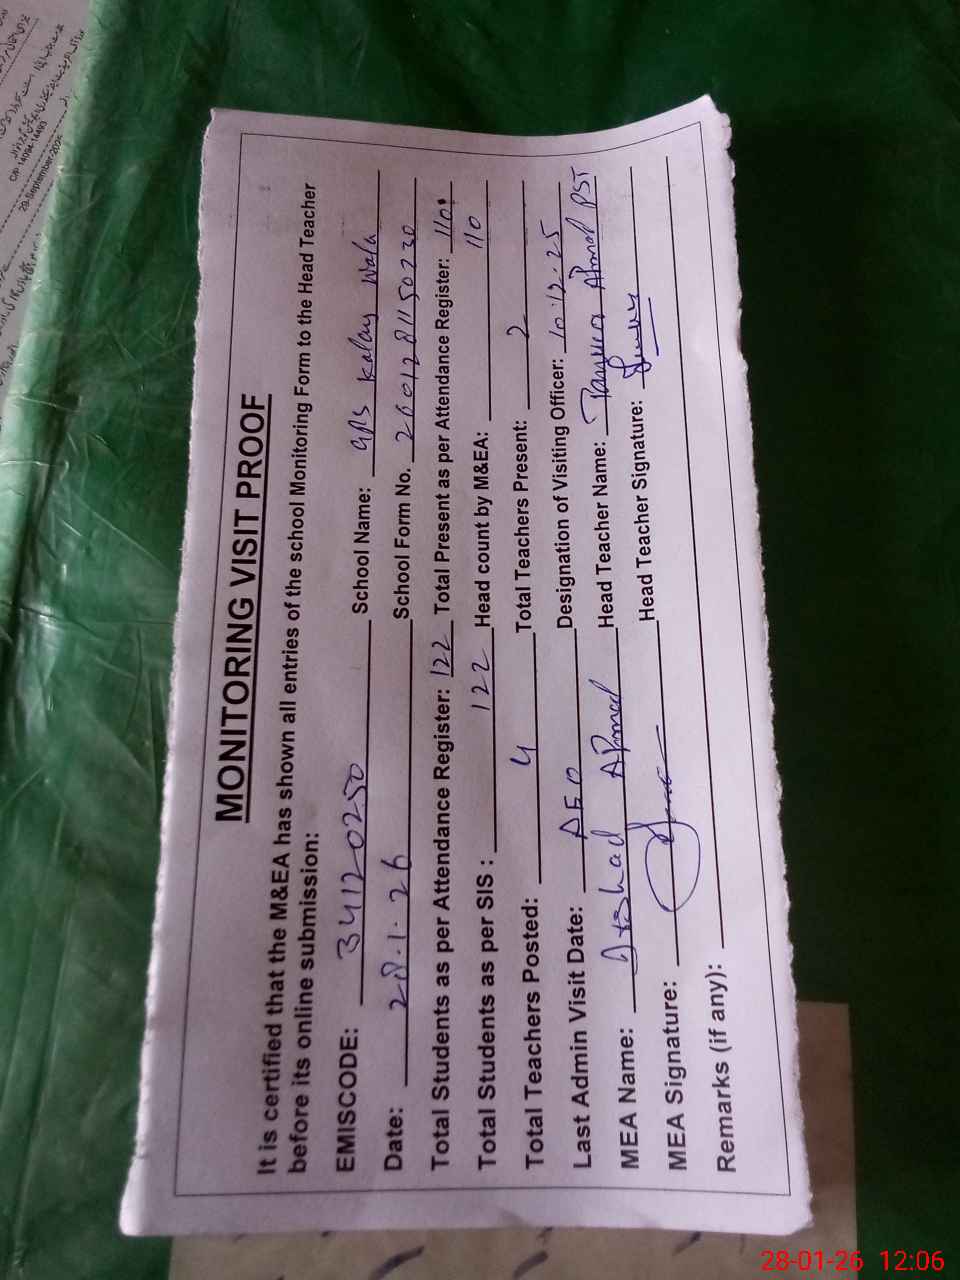 MONITORING VISIT PROOF
It is certified that the M&EA has shown all entries of the school Monitoring Form to the Head Teacher
before its online submission:
EMISCODE: 34120250 School Name: GPS Kalay Wala
Date: 28.1.26 School Form No. 2601281150230
Total Students as per Attendance Register: 122 Total Present as per Attendance Register: 110
Total Students as per SIS : 122 Head count by M&EA: 110
Total Teachers Posted: 4 Total Teachers Present: 2
Last Admin Visit Date: AEO Designation of Visiting Officer: 10.12.25
MEA Name: Ahmad Head Teacher Name: Ahmad PST
MEA Signature: Head Teacher Signature:
Remarks (if any):
29-September-2025
28-01-26 12:06